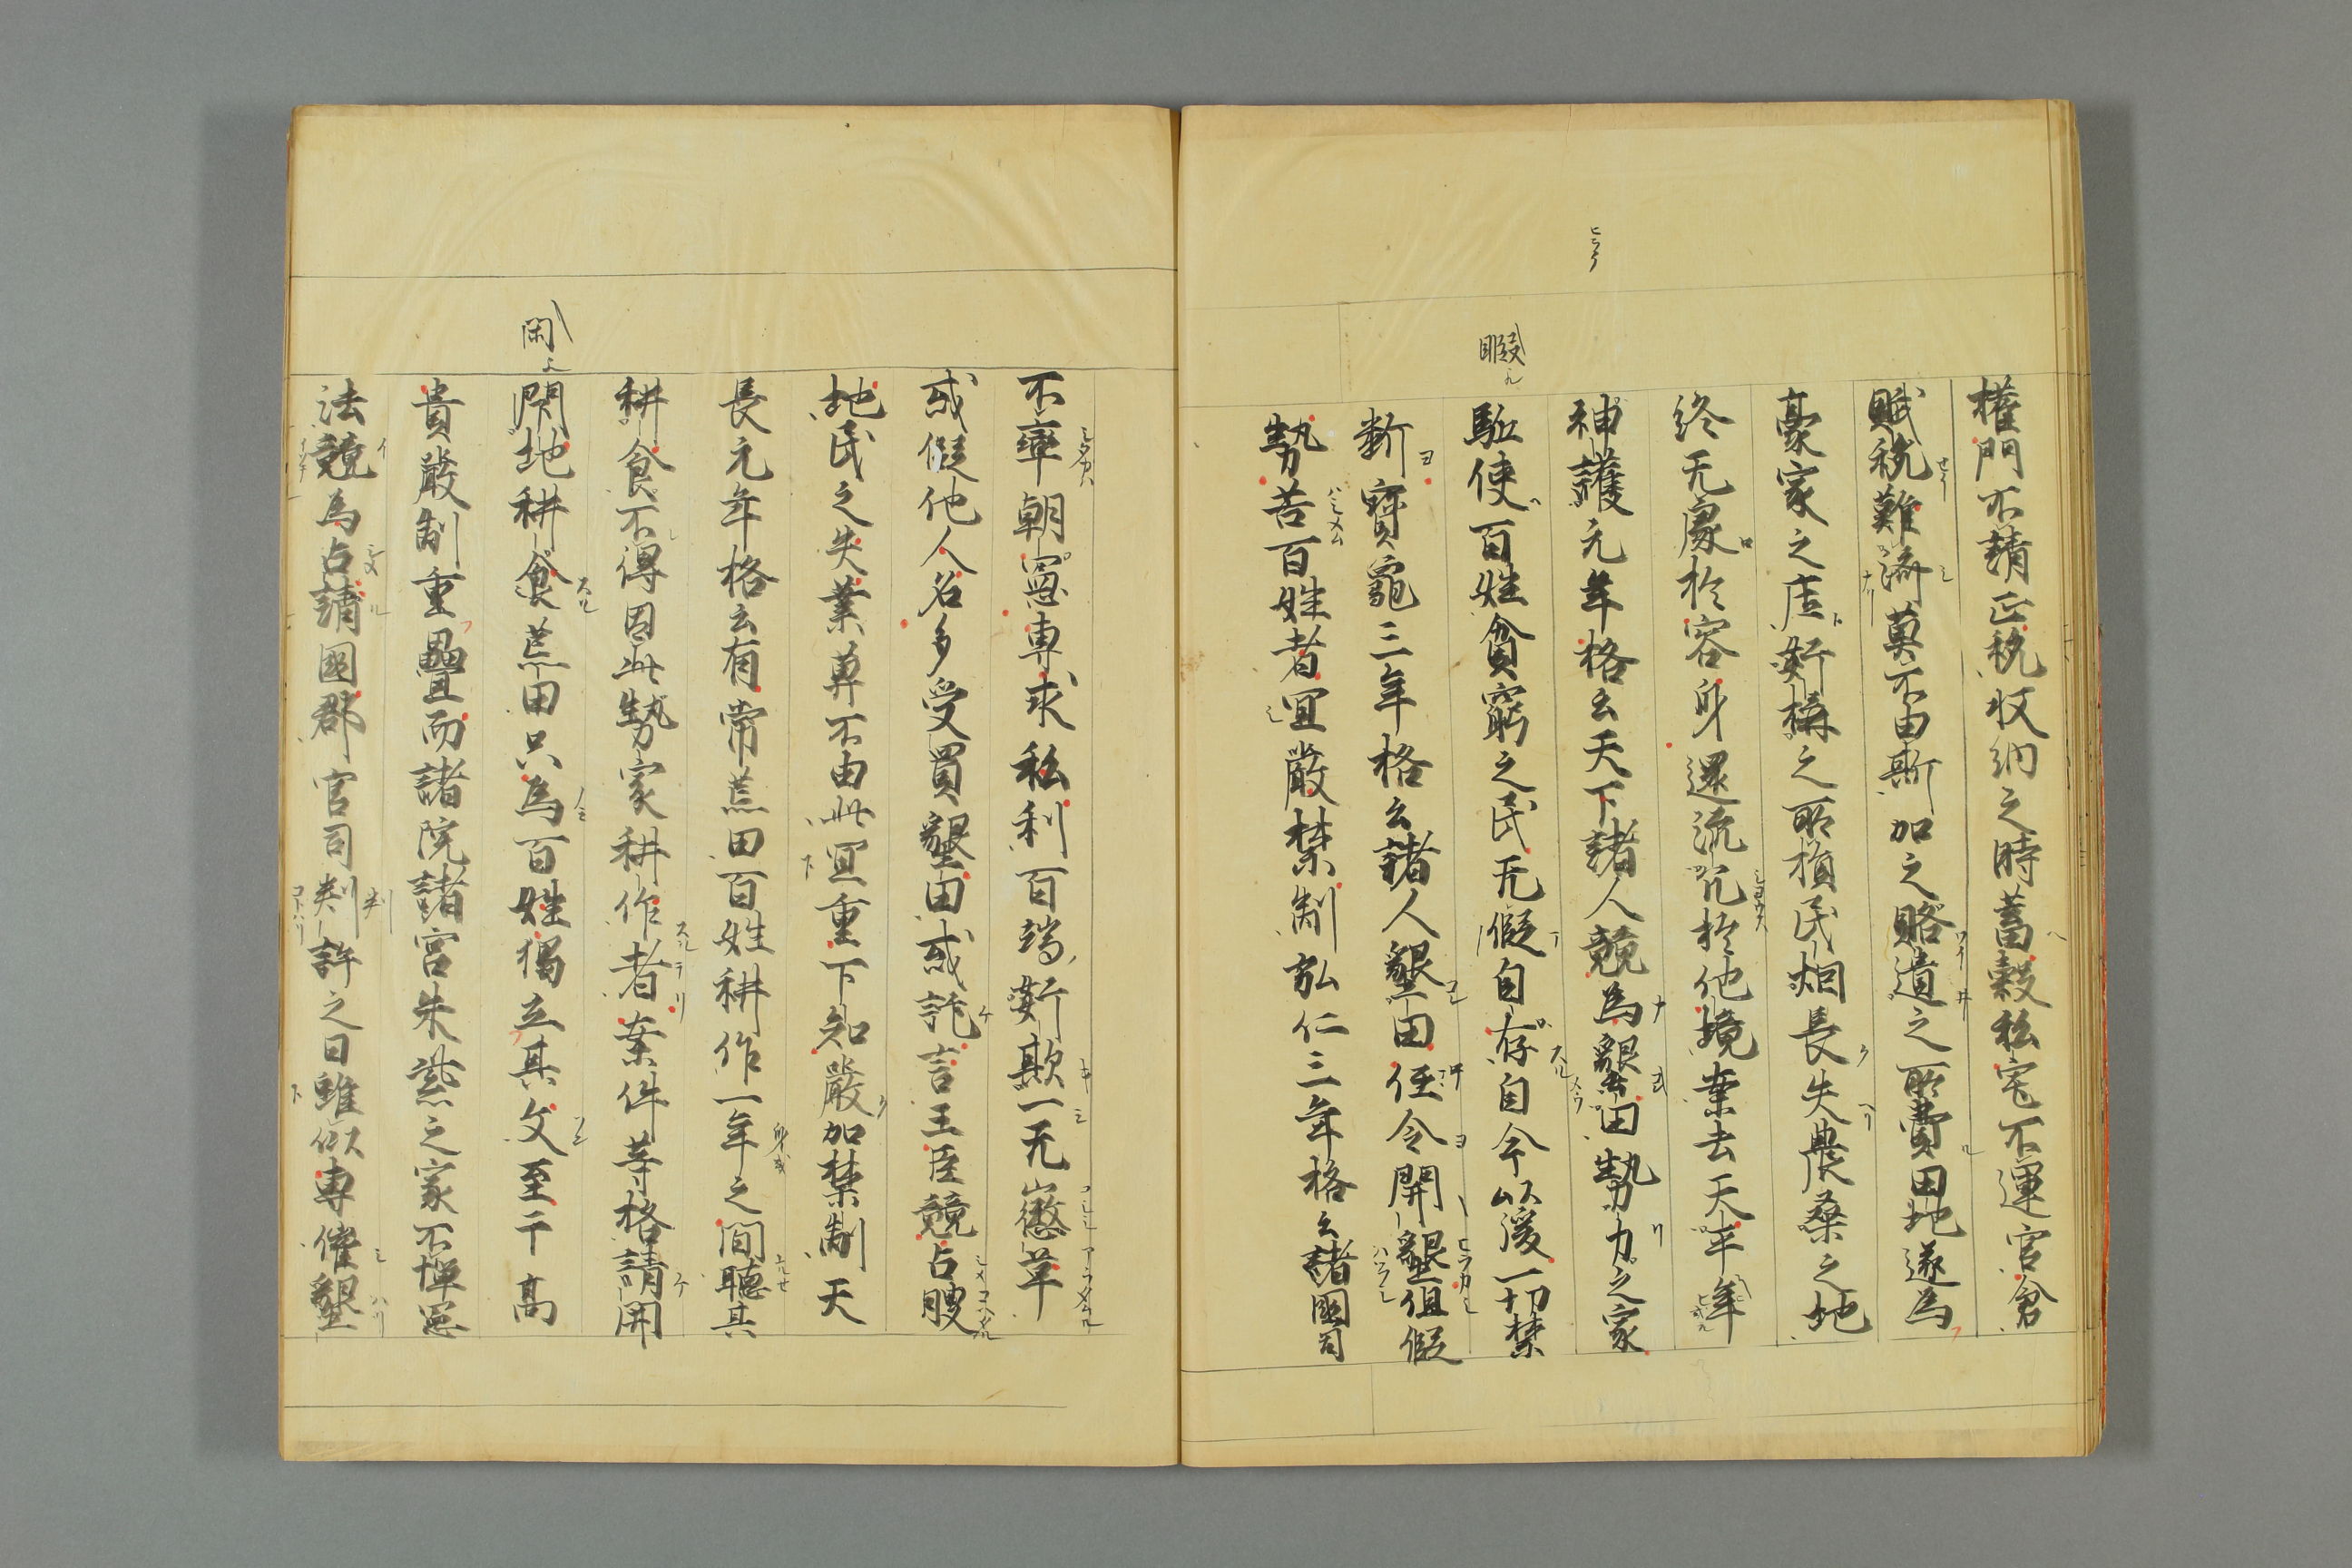 權門不請正税收納之時蓄穀私宅不運官倉
賦税難濟莫不由斯加之賂遺之所費田地遂爲
豪家之庄奸構之所損民烟長失農桑之地
終无處於容身還流冗於他境案去天平
神護元年格云天下諸人競爲墾田勢力之家
駈使百姓貧窮之民无假自存自今以後一切禁
斷寶龜三年格云諸人墾田任令開墾但假
勢苦百姓者宜嚴禁制弘仁三年格云諸國司
不率朝憲専求私利百端奸欺一无懲革
或假他人名多受買墾田或託言王臣競占腴
地民之失業莫不由此宜重下知嚴加禁制天
長元年格云有常荒田百姓耕作一年之間聽其
耕食不得因此勢家耕作者案件等格請閑
閑地耕食荒田只爲百姓獨立其文至于高
貴嚴制重疊而諸院諸宮朱紫之家不憚憲
法競爲占請國郡官司判許之日雖似専催墾
ヒラク
暇
閑